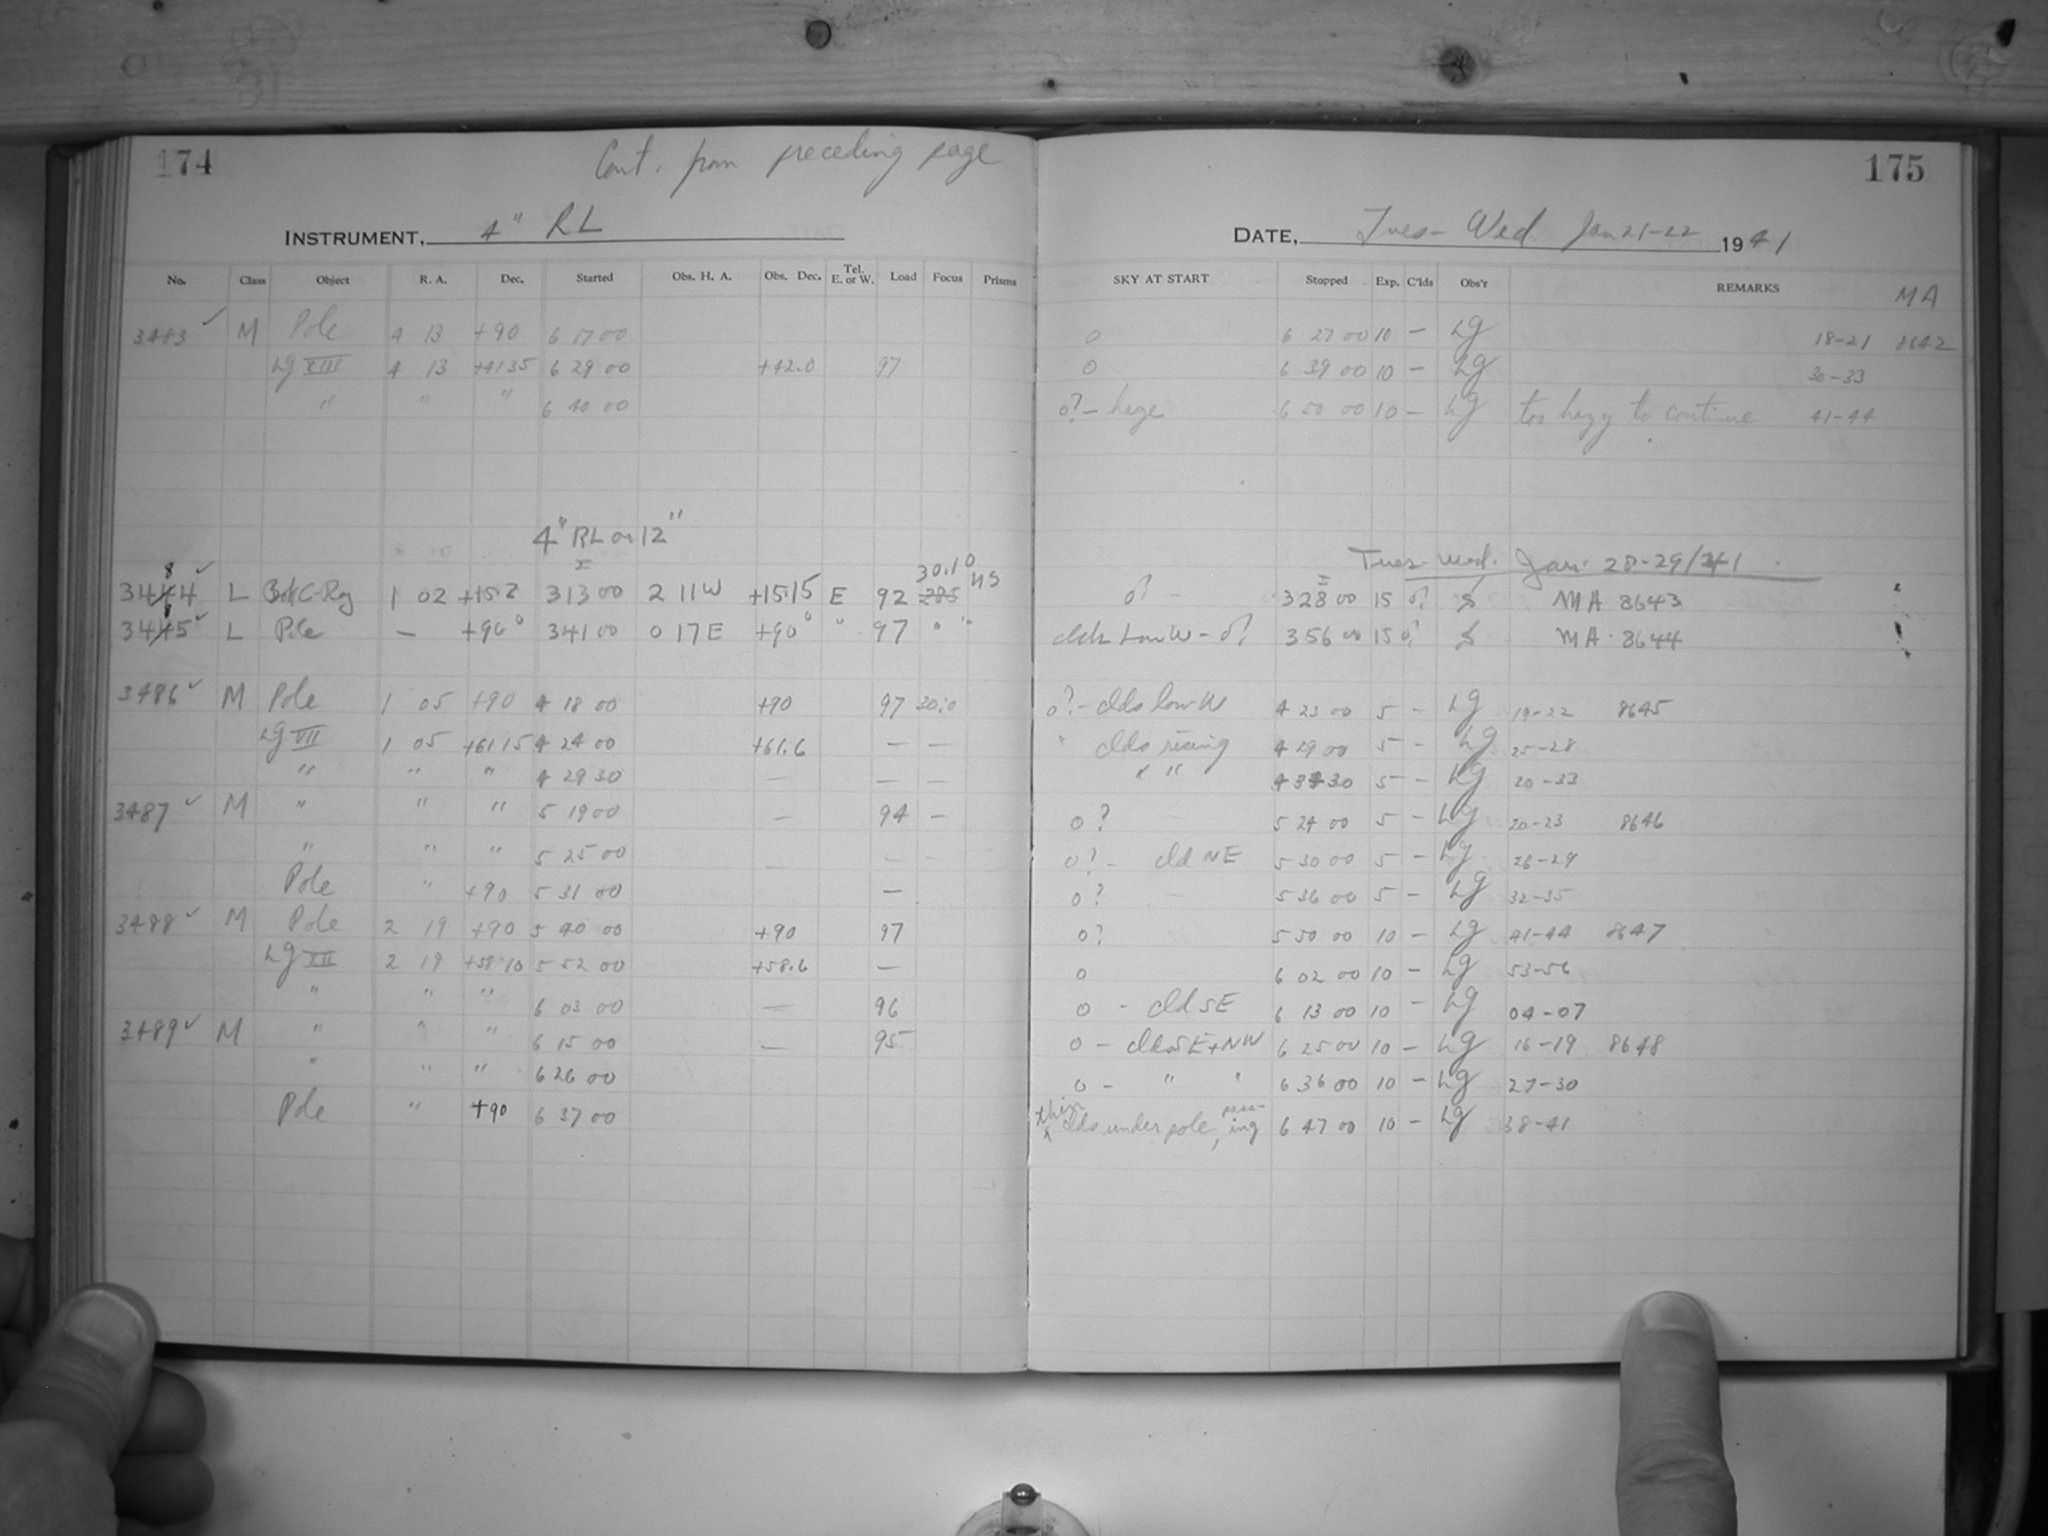 174
Cont. from preceding page
INSTRUMENT, 4" RL
No. Class Object R. A. Dec. Started Obs. H. A. Obs. Dec. Tel. E. or W. Load Focus Prisms
3483 ✓ M Pole 4 13 +90 6 17 00
Lg XIII 4 13 +41 35 6 29 00 +42.0 97
" " " 6 40 00
4" RL on 12"
34 8 4 ✓ L 1 02 +15.2 3 13 00 2 11 W +15.15 E 92 30.10
34 8 5 ✓ L Pole — +90° 3 41 00 0 17 E +90° " 97 " "
3486 ✓ M Pole 1 05 +90 4 18 00 +90 97 30.0
Lg VII 1 05 +61 15 4 24 00 +61.6 — —
" " " 4 29 30 — — —
3487 ✓ M " " " 5 19 00 — 94 —
" " " 5 25 00 — — —
Pole " +90 5 31 00 —
3488 ✓ M Pole 2 19 +90 5 40 00 +90 97
Lg XII 2 19 +58 10 5 52 00 +58.6 —
" " " 6 03 00 — 96
3489 ✓ M " " " 6 15 00 — 95
" " " 6 26 00
Pole " +90 6 37 00
175
DATE, Tues - Wed Jan 21-22 1941
SKY AT START Stopped Exp. C'lds Obs'r REMARKS
MA
0 6 27 00 10 — Lg 18-21 8642
0 6 39 00 10 — Lg 30-33
0? - haze 6 50 00 10 — Lg too hazy to continue 41-44
Tues - Wed. Jan. 28-29/41
0? - 3 28 00 15 0? MA 8643
clds Low W - 0? 3 56 00 15 0? MA 8644
0? - clds low W 4 23 00 5 - Lg 19-22 8645
" clds rising 4 29 00 5 - Lg 25-28
" " 4 34 30 5 - Lg 30-33
0? 5 24 00 5 - Lg 20-23 8646
0? - cld NE 5 30 00 5 - Lg 26-29
0? 5 36 00 5 - Lg 32-35
0? 5 50 00 10 - Lg 41-44 8647
0 6 02 00 10 - Lg 53-56
0 - cld SE 6 13 00 10 - Lg 04-07
0 - clds SE + NW 6 25 00 10 - Lg 16-19 8648
0 - " " 6 36 00 10 - Lg 27-30
thin clds under pole, passing 6 47 00 10 - Lg 38-41